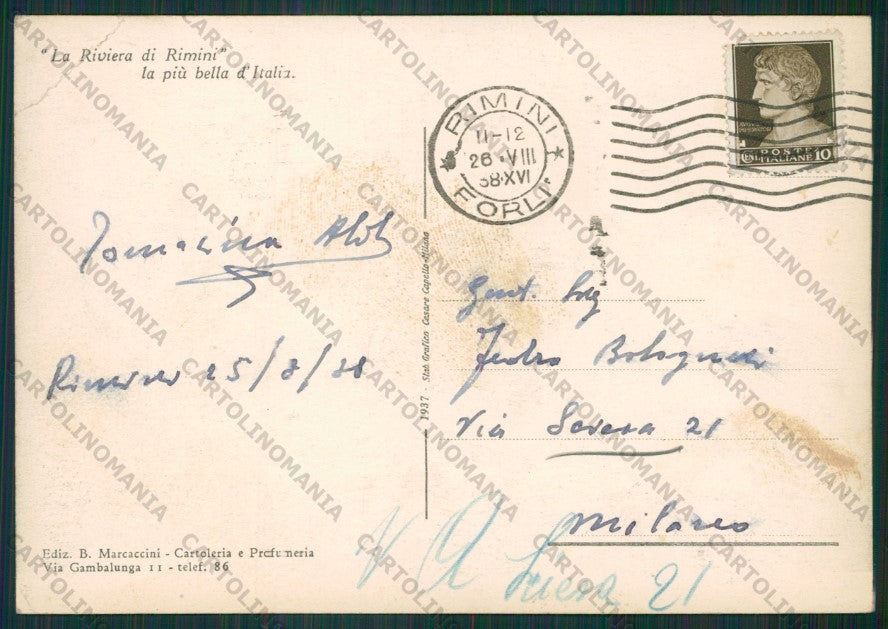 "La Riviera di Rimini"
la più bella d'Italia.
RIMINI
11-12
26·VIII
38·XVI
FORLI'
POSTE
CENT. ITALIANE 10
Rimini 25/8/38
1937 - Stab Grafico Cesare Capello-Milano
Gent. Sig
Bolognesi
Via 21
Milano
21
Ediz. B. Marcaccini - Cartoleria e Profumeria
Via Gambalunga 11 - telef. 86
CARTOLINOMANIA